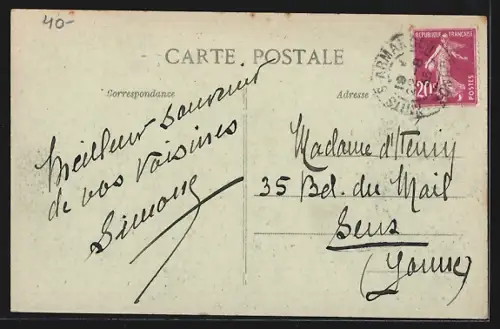 40-
CARTE POSTALE
Correspondance
Adresse
RÉPUBLIQUE FRANÇAISE
20c
POSTES
Meilleur souvenir
de vos voisines
Simone
Madame d'Henry
35 Bel. du Mail
Sens
(Yonne)